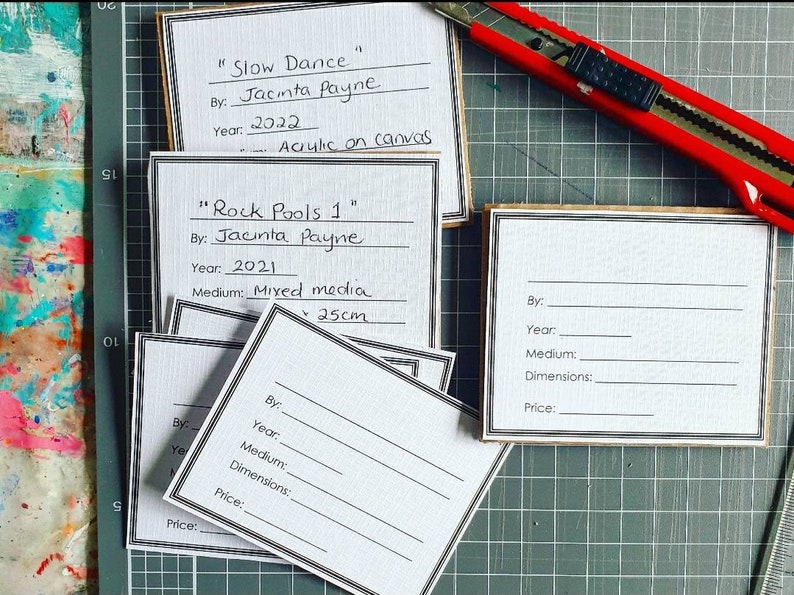 20
15
10
5
"Slow Dance"
By: Jacinta Payne
Year: 2022
Acrylic on canvas
"Rock Pools 1"
By: Jacinta Payne
Year: 2021
Medium: Mixed media
x 25cm
By:
Year:
Medium:
Dimensions:
Price:
By:
Price:
By:
Year:
Medium:
Dimensions:
Price: